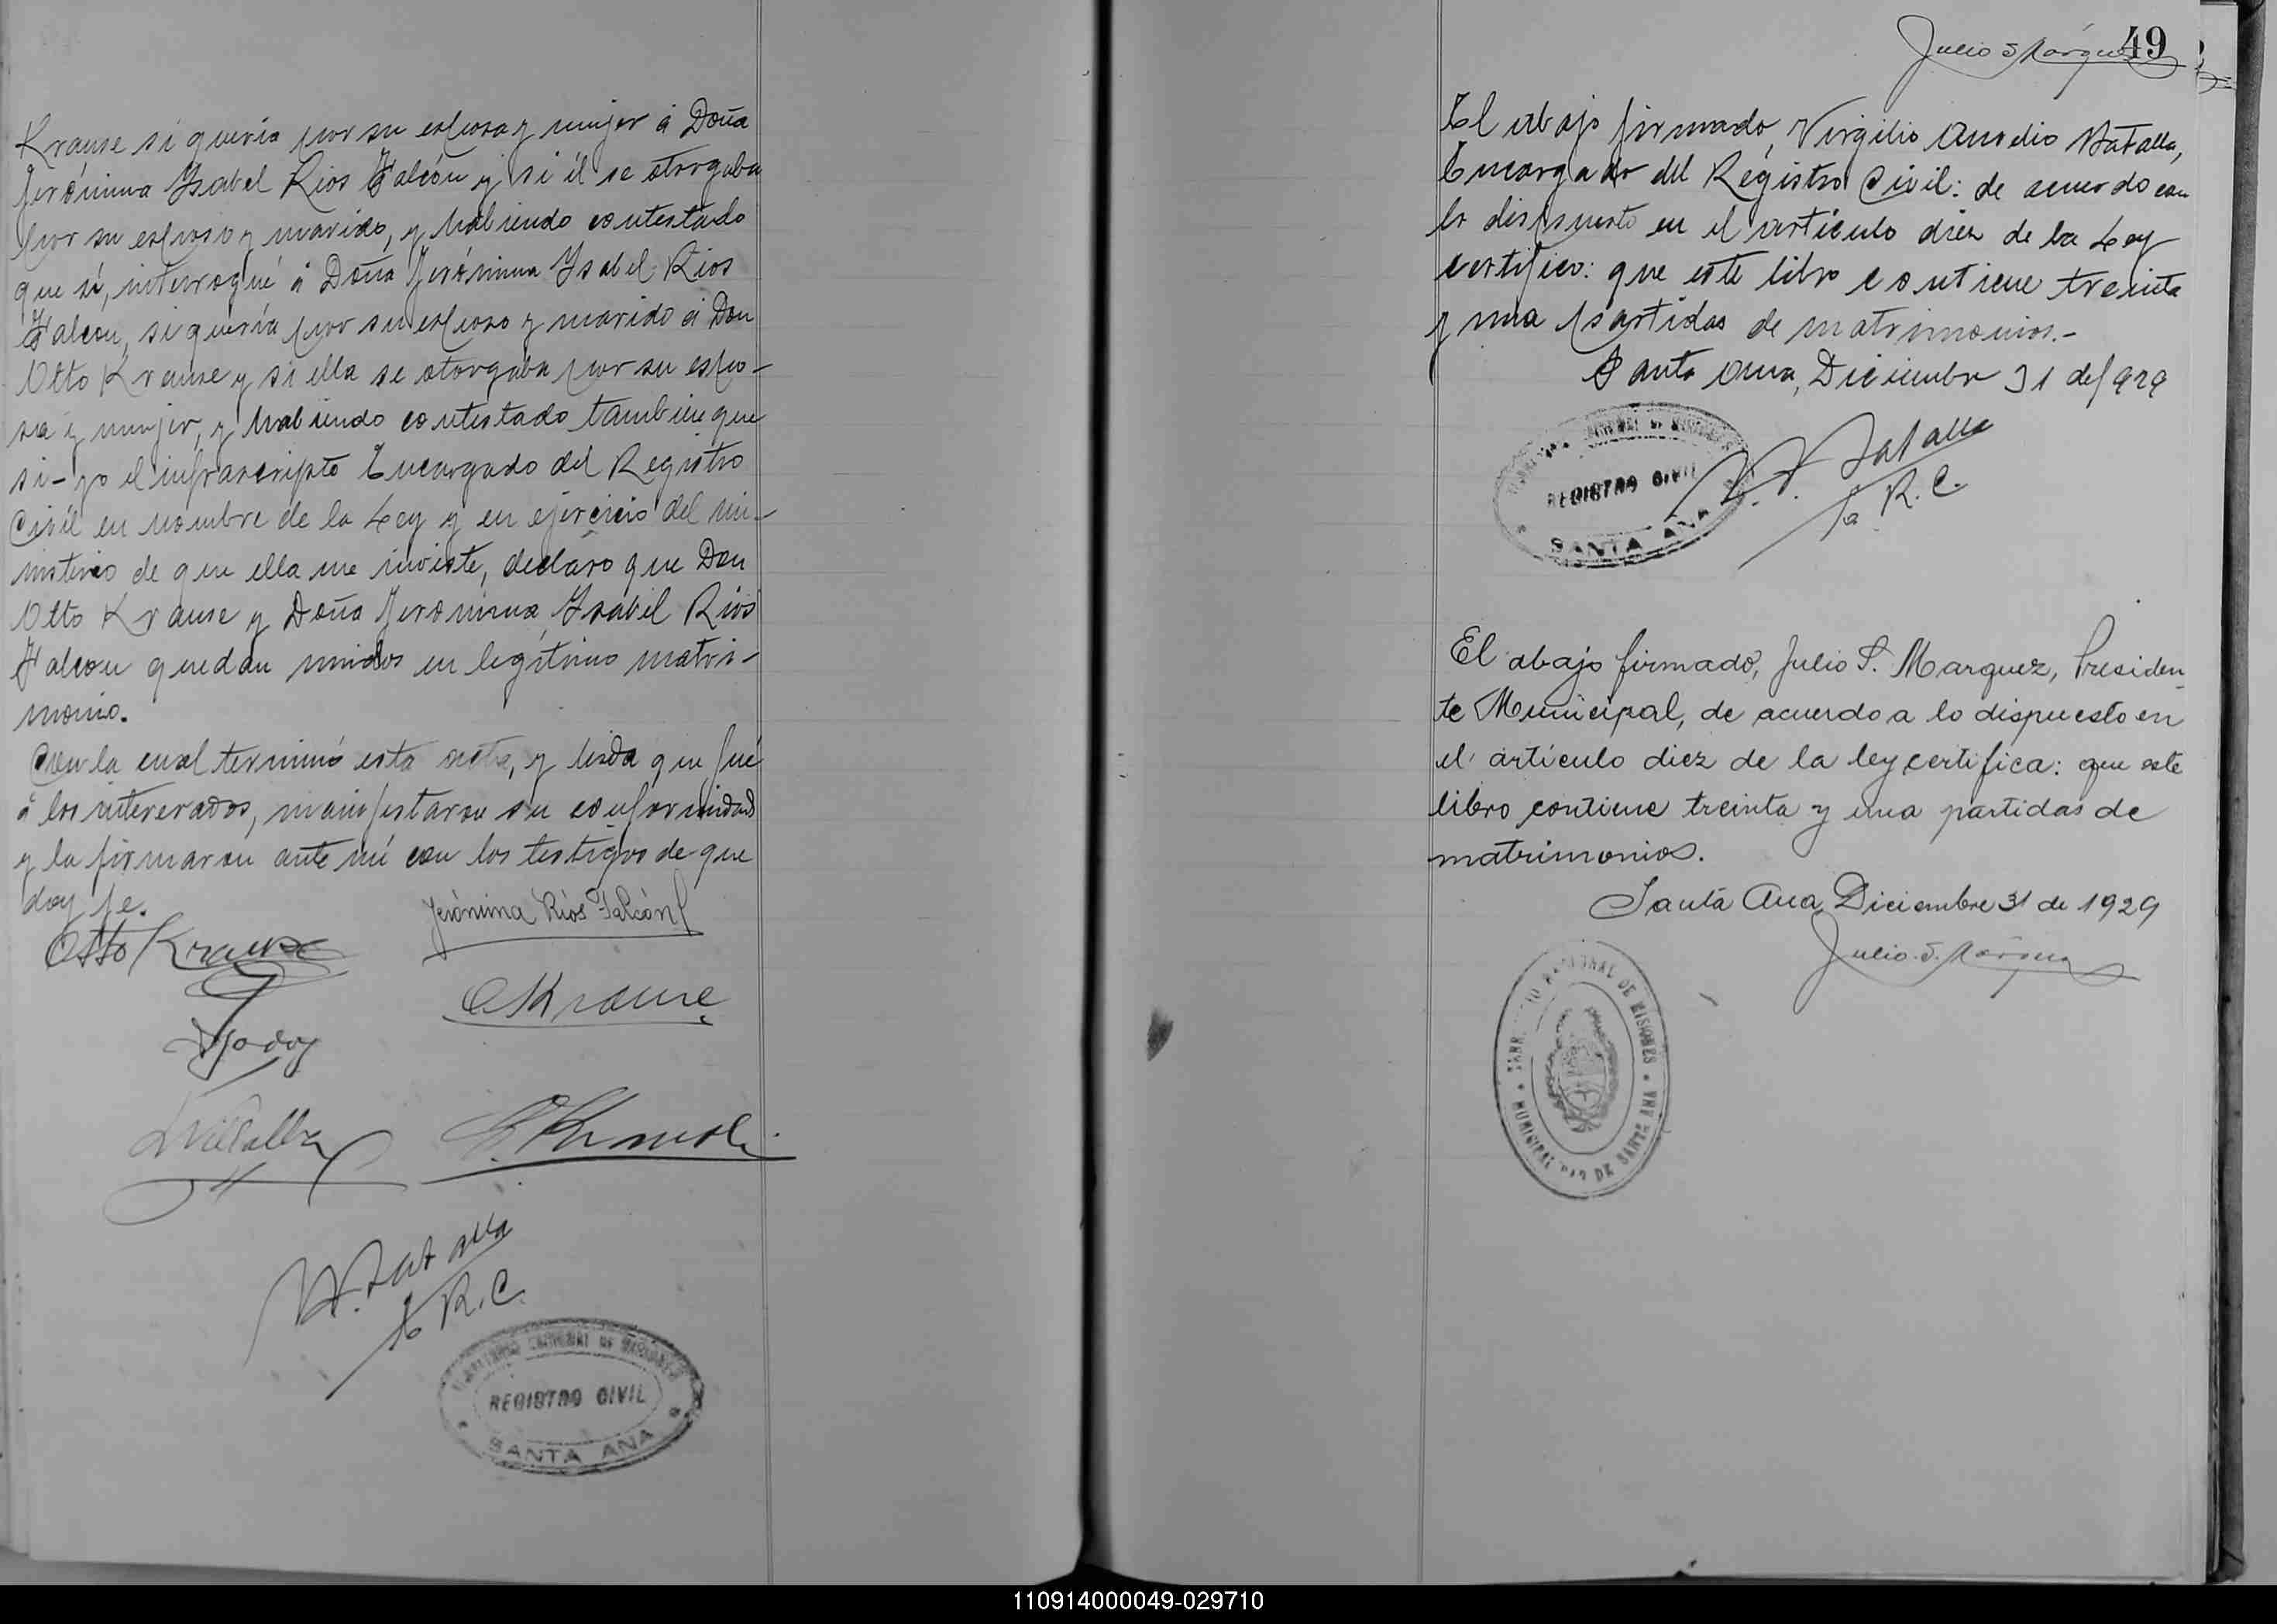 Krause si quería por su esposa y mujer á Doña
Jerónima Ysabel Rios Falcón y si él se otorgaba
por su esposo y marido, y habiendo contestado
que sí, interrogué á Doña Jerónima Ysabel Rios
Falcon, si quería por su esposo y marido á Don
Otto Krause y si ella se otorgaba por su espo-
sa y mujer, y habiendo contestado tambien que
si- yo el infrascripto Encargado del Registro
Civil en nombre de la Ley y en ejercicio del mi-
nisterio de que ella me inviste, declaro que Don
Otto Krause y Doña Jeronima Ysabel Rios
Falcon quedan unidos en legítimo matri-
monio.
Con la cual terminó esta acta, y leida que fué
á los interesados, manifestaron su conformidad
y la firmaron ante mí con los testigos de que
doy fe.
Jerónima Ríos Falcón
Otto Krause
OKrause
Godoy
V. A. Batalla
E R. C.
TERRITORIO NACIONAL DE MISIONES
REGISTRO CIVIL
SANTA ANA
Julio S Márquez
49
El abajo firmado, Virgilio Amedio Batalla,
Encargado del Registro Civil: de acuerdo con
lo dispuesto en el artículo diez de la Ley
certifico: que este libro contiene treinta
y una partidas de matrimonios.-
Santa Ana, Diciembre 31 de 1929
V. A. Batalla
E R. C.
TERRITORIO NACIONAL DE MISIONES
REGISTRO CIVIL
SANTA ANA
El abajo firmado, Julio S. Marquez, Presiden-
te Municipal, de acuerdo a lo dispuesto en
el artículo diez de la ley certifica: que este
libro contiene treinta y una partidas de
matrimonios.
Santa Ana Diciembre 31 de 1929
Julio. S. Márquez
TERRITORIO NACIONAL DE MISIONES
MUNICIPALIDAD DE SANTA ANA
110914000049-029710